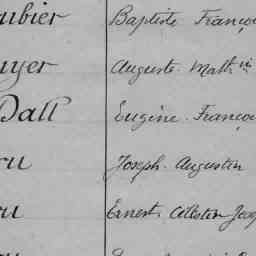 ubier Baptiste Franço
uyer Auguste Matth
Dall Eugène Franço
ru Joseph Augustin
ou Ernest Célestin Jose